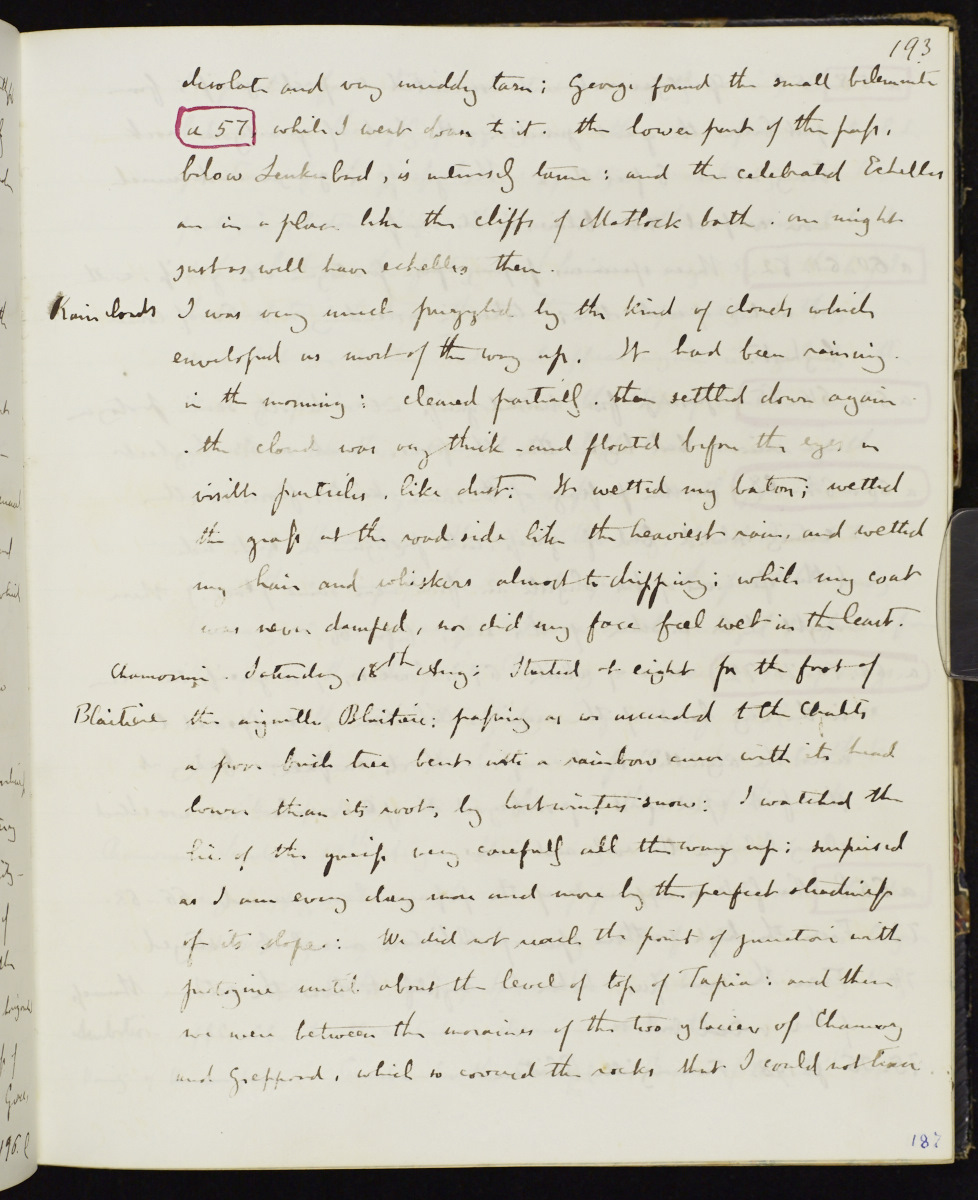 193
desolate and very muddy tarn; George found the small belemnite
a 57, while I went down to it. the lower part of the pass,
below Leukerbad, is intensely tame: and the celebrated Echelles
are in a place like the cliffs of Matlock bath. one might
just as well have echelles there.
Rain clouds I was very much puzzled by the kind of clouds which
enveloped us most of the way up. It had been raining
in the morning: cleared partially. then settled down again
. the cloud was very thick - and floated before the eyes in
visible particles, like dust: It wetted my baton; wetted
the grass at the road side like the heaviest rain, and wetted
my hair and whiskers almost to dripping; while my coat
was never damped, nor did my face feel wet in the least.
Chamouni. Saturday 18th Aug: Started at eight for the foot of
Blaitiere the aiguille Blaitiere; passing as we ascended to the Chalets
a poor birch tree bent into a rainbow curve with its head
lower than its root, by last winters snow: I watched the
lie of the gneiss very carefully all the way up; surprised
as I am every day more and more by the perfect steadiness
of its slope: We did not reach the point of junction with
protogine until about the level of top of Tapia: and then
we were between the moraines of the two glaciers of Chamouny
and Greppond, which so covered the rocks that I could not trace
187